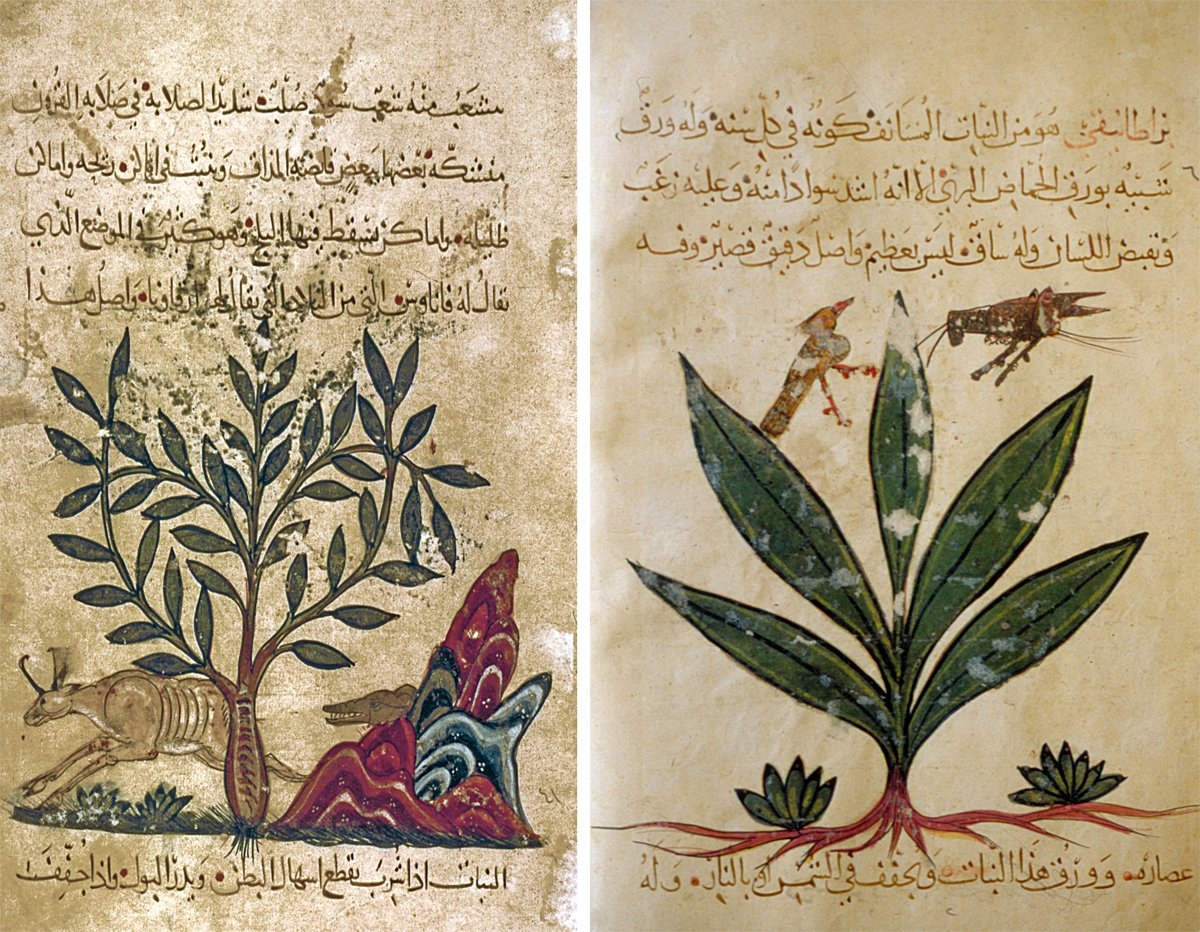 براطانيقي هو من النبات المستانف كونه في كل سنة وله ورق
شبيه بورق الحماض البري الا انه اشد سوادا منه وعليه زغب
وتقبض اللسان وله ساق ليس بعظيم واصل دقيق قصير وفيه
عصاره وورق هذا النبات ويجفف في الشمس او بالنار وله
متشعب منه شعب سود صلب شديد الصلابة في صلابة القرون
متشبكة بعضها ببعض قابضة المذاق وينبت في اماكن ريحه واماكن
ظليلة واماكن يسقط فيها الثلج وهو كثير في الموضع الذي
يقال له فاناوس التي من البلاد التي يقال لها واصل هذا
النبات اذا شرب يقطع اسهال البطن ويدر البول واذا جفف